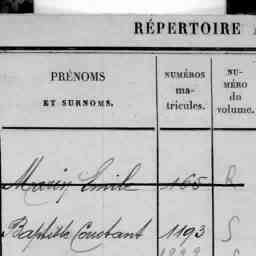 RÉPERTOIRE
PRÉNOMS
ET SURNOMS.
NUMÉROS
ma-
tricules.
NU-
MÉRO
du
volume.
Marin Emile 165 R
Baptiste Constant 1193 S